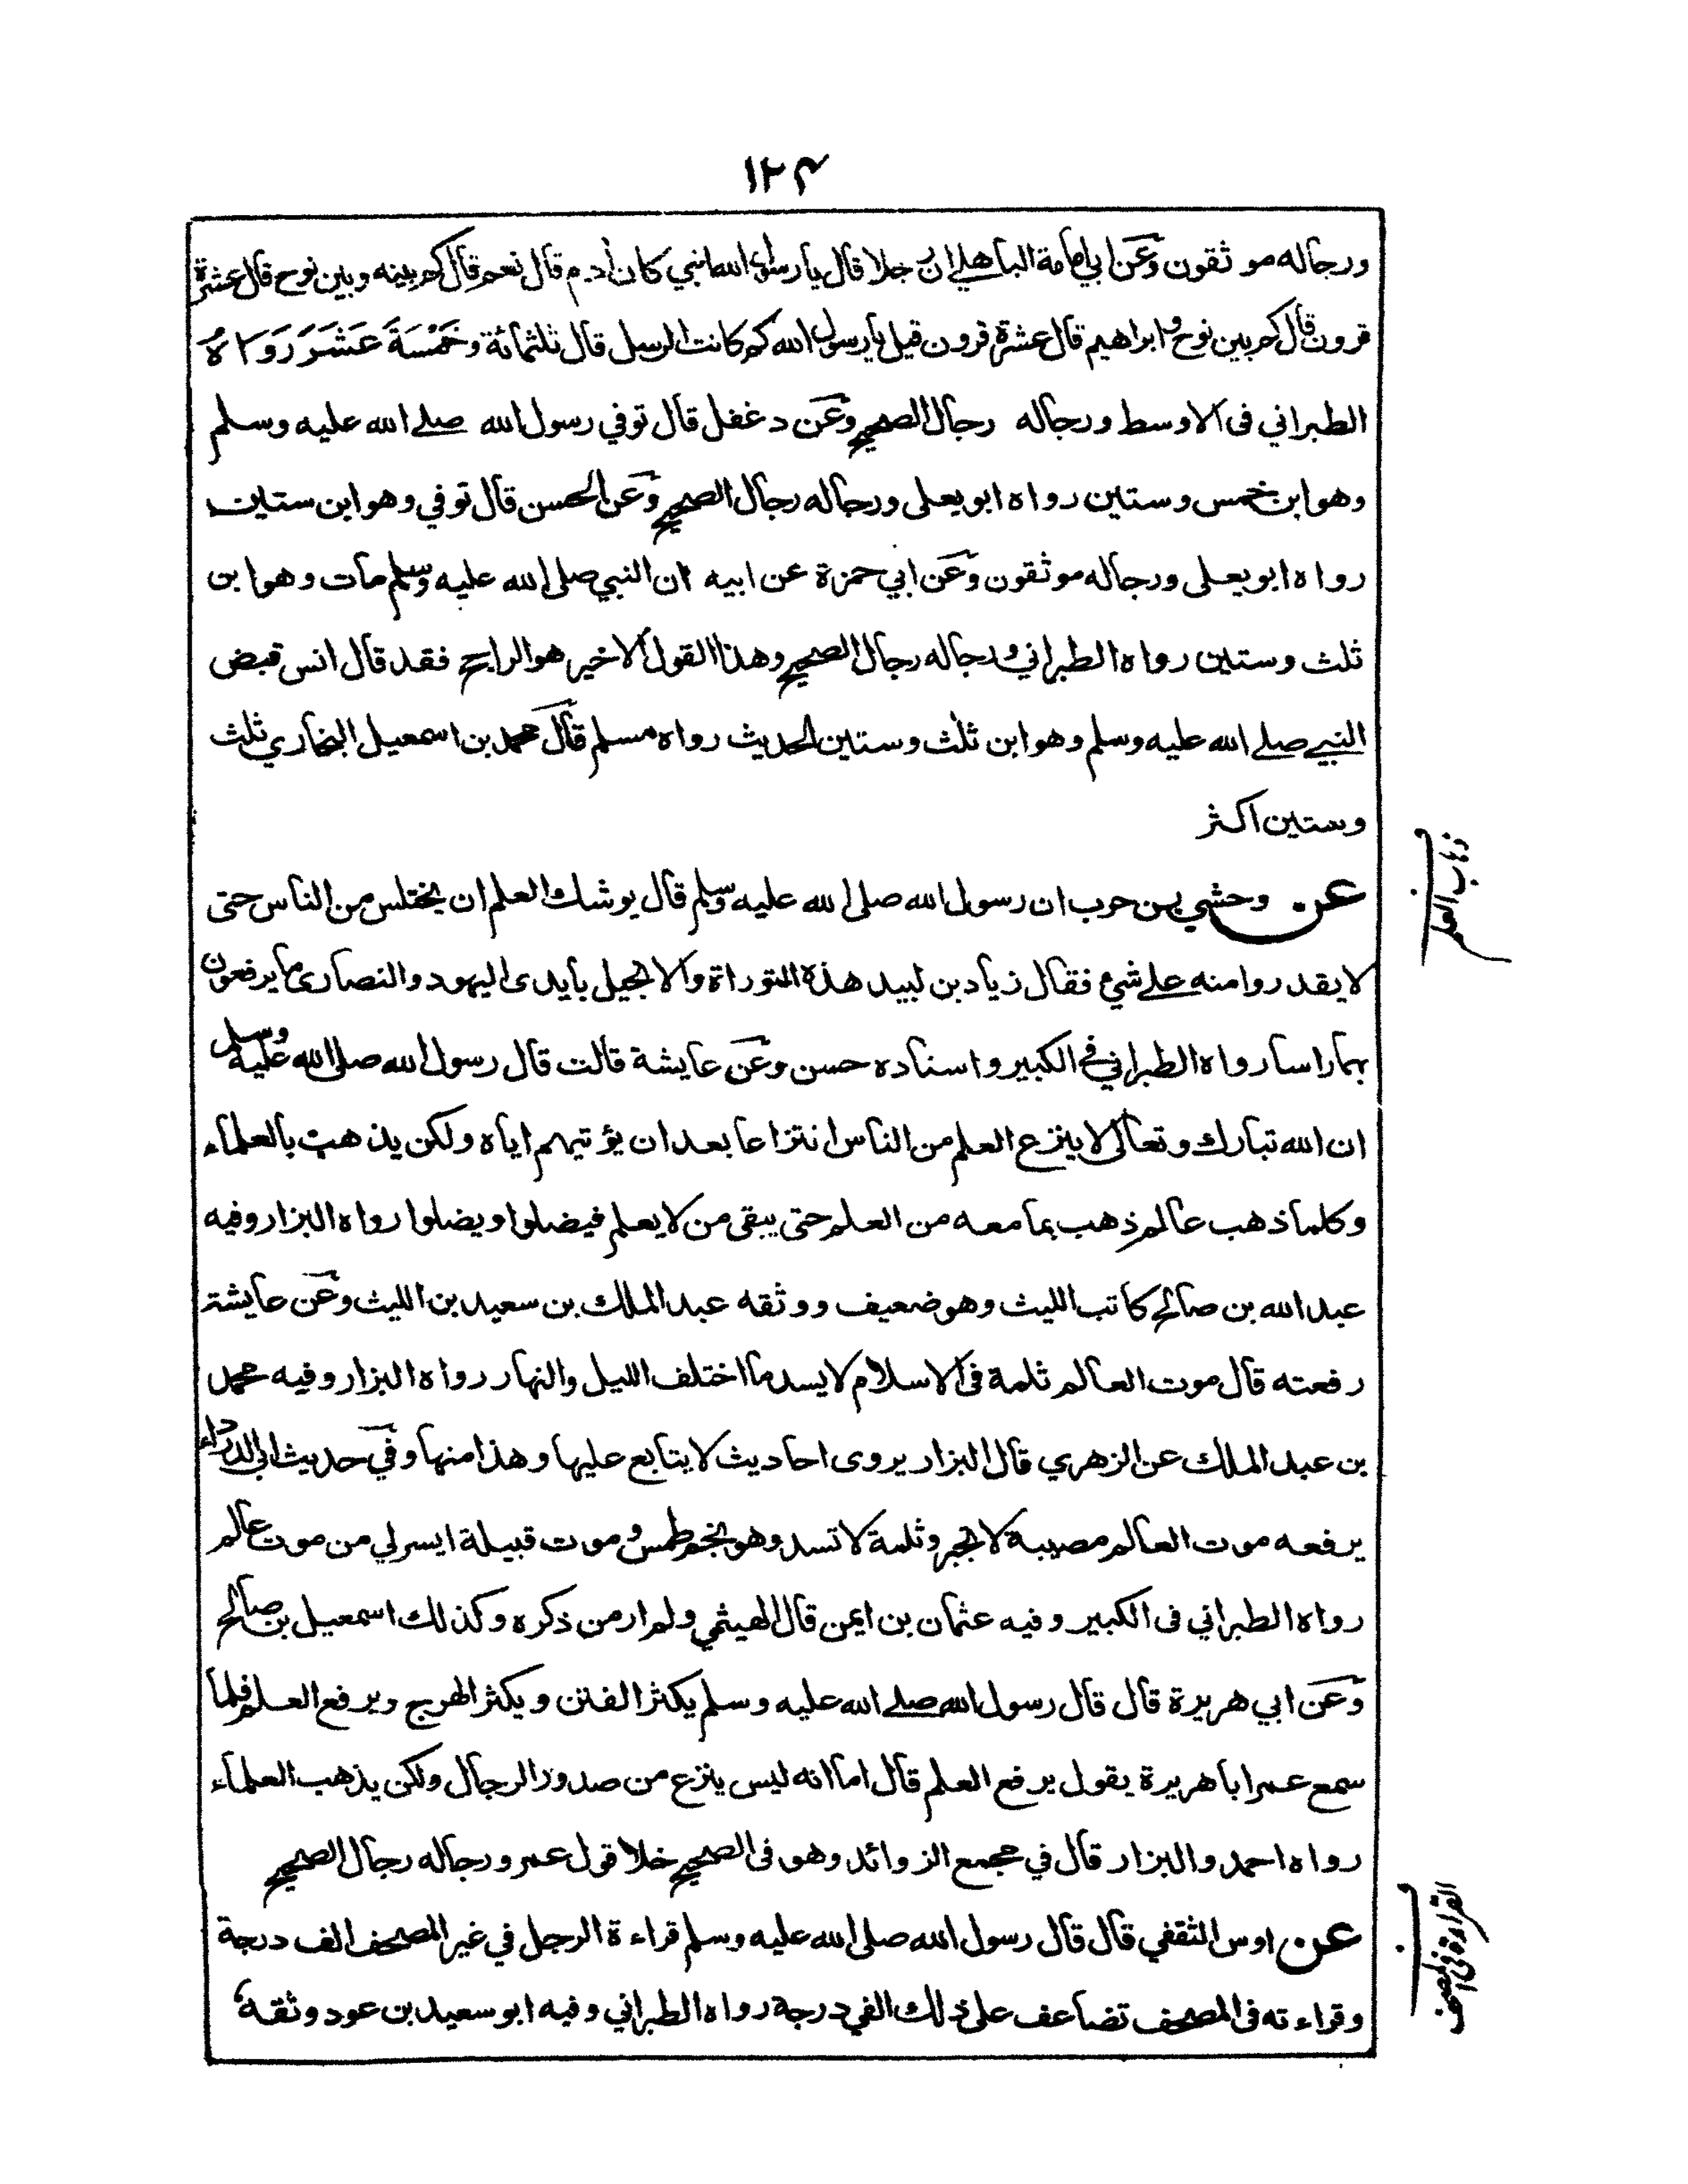 ١٢٤
ورجاله موثقون وعن ابي امامة الباهلي ان رجلا قال يا رسول الله انبي كان ادم قال نعم قال كم بينه وبين نوح قال عشرة
قرون قال كم بين نوح وابراهيم قال عشرة قرون قيل يا رسول الله كم كانت الرسل قال ثلثمائة وخَمْسَةَ عَشَرَ رَوَاهُ
الطبراني فى الاوسط ورجاله رجال الصحيح وعن دغفل قال توفي رسول الله صلے الله عليه وسلم
وهو ابن خمس وستين رواه ابو يعلى ورجاله رجال الصحيح وعن الحسن قال توفي وهو ابن ستين
رواه ابو يعلى ورجاله موثقون وعن ابي حمزة عن ابيه ان النبي صلى الله عليه وسلم مات وهو ابن
ثلث وستين رواه الطبراني ورجاله رجال الصحيح وهذا القول الاخير هو الراجح فقد قال انس قبض
النبي صلے الله عليه وسلم وهو ابن ثلث وستين الحديث رواه مسلم قال محمد بن اسمعيل البخاري ثلث
وستين اكثر
ذهاب العلم
عن وحشي بن حرب ان رسول الله صلى الله عليه وسلم قال يوشك العلم ان يختلس من الناس حتى
لا يقدروا منه علے شئ فقال زياد بن لبيد هذه التوراة والانجيل بايدى اليهود والنصارى ما يرفعون
بها راسا رواه الطبراني في الكبير واسناده حسن وعن عايشة قالت قال رسول الله صلى الله عليه وسلم
ان الله تبارك وتعالى لا ينزع العلم من الناس انتزاعا بعد ان يؤتيهم اياه ولكن يذهب بالعلماء
وكلما ذهب عالم ذهب بما معه من العلم حتى يبقى من لا يعلم فيضلوا ويضلوا رواه البزار وفيه
عبد الله بن صالح كاتب الليث وهو ضعيف ووثقه عبد الملك بن سعيد بن الليث وعن عايشة
رفعته قال موت العالم ثلمة فى الاسلام لا يسد ما اختلف الليل والنهار رواه البزار وفيه محمد
بن عبد الملك عن الزهري قال البزار يروى احاديث لا يتابع عليها وهذا منها وفي حديث ابى الدرداء
يرفعه موت العالم مصيبة لا تجبر وثلمة لا تسد وهو نجم طمس وموت قبيلة ايسر لي من موت عالم
رواه الطبراني فى الكبير وفيه عثمان بن ايمن قال الهيثمي ولم ار من ذكره وكذلك اسمعيل بن صالح
وعن ابي هريرة قال قال رسول الله صلے الله عليه وسلم يكثر الفتن ويكثر الهرج ويرفع العلم فلما
سمع عمر ابا هريرة يقول يرفع العلم قال اما انه ليس ينزع من صدور الرجال ولكن يذهب العلماء
رواه احمد والبزار قال في مجمع الزوائد وهو فى الصحيح خلا قول عمر ورجاله رجال الصحيح
القراءة فى المصحف
عن اوس الثقفي قال قال رسول الله صلى الله عليه وسلم قراءة الرجل في غير المصحف الف درجة
وقراءته فى المصحف تضاعف على ذلك الفي درجة رواه الطبراني وفيه ابو سعيد بن عود وثقه